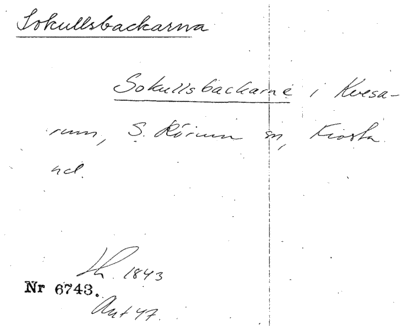 Sokullsbackarna
Sokullsbackarne i Kvesa-
rum, S. Rörum sn, Frosta
hd.
Lh. 1843
Nr 6743.
Ant 47.